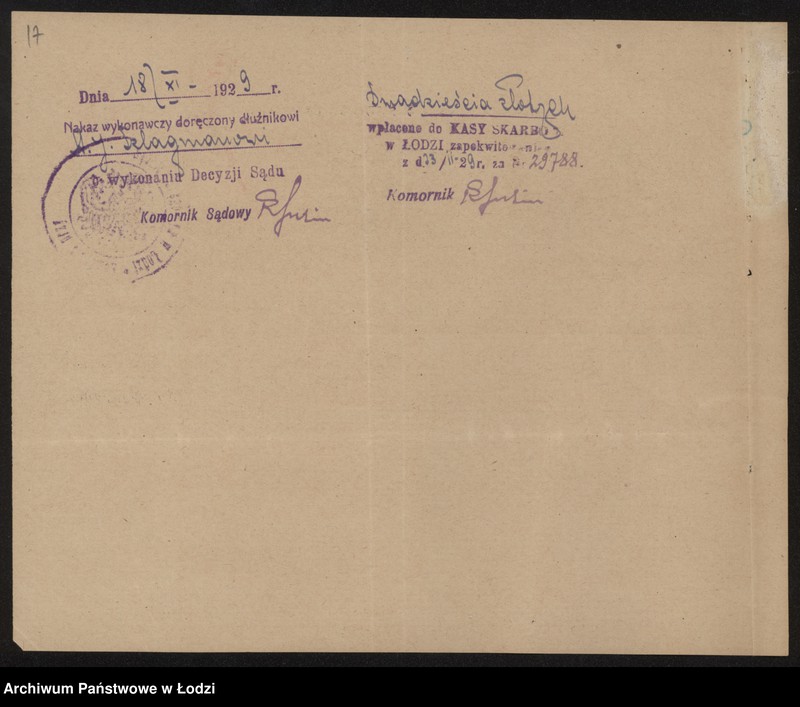 17
Dnia 18/XI - 1929 r.
Nakaz wykonawczy doręczony dłużnikowi
o wykonaniu Decyzji Sądu
Komornik Sądowy
w Łodzi
Dwadzieścia złotych
wpłacone do KASY SKARB
w ŁODZI zapokwitowanie
z d. 23/II-29 r. za № 29788.
Komornik
Archiwum Państwowe w Łodzi